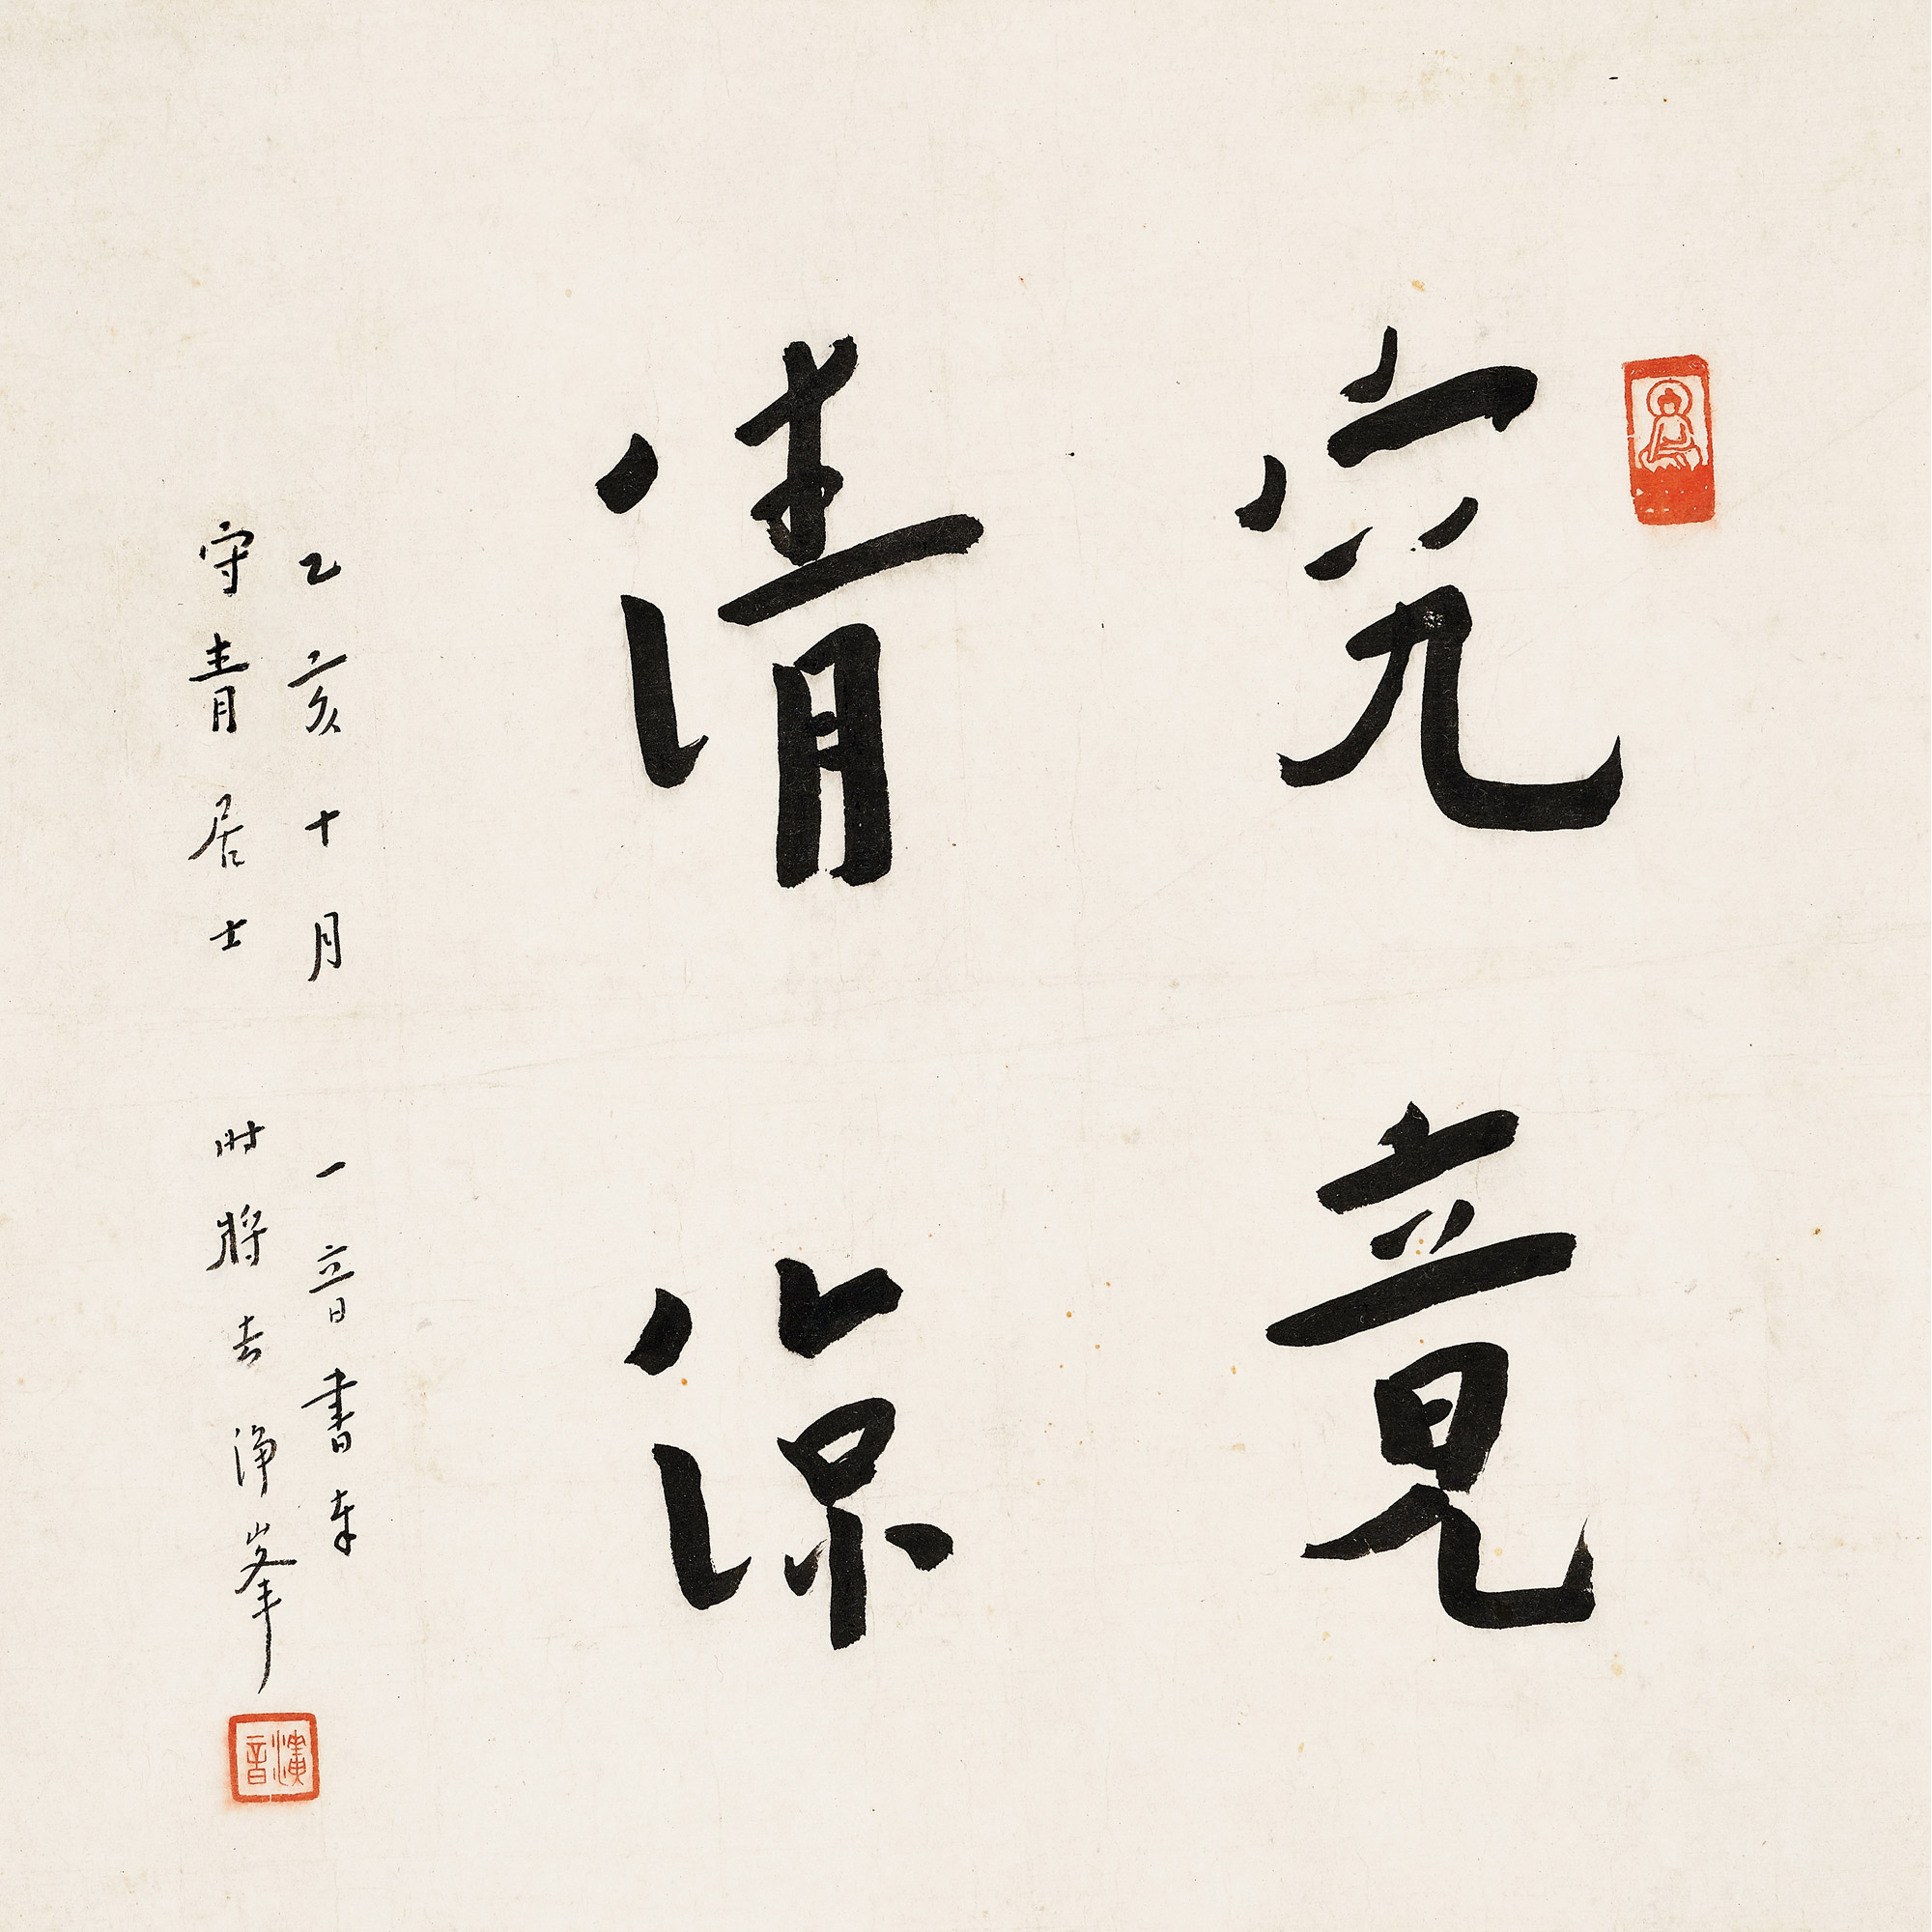 究竟
清涼
乙亥十月 一音書奉
守青居士 时將去淨峯